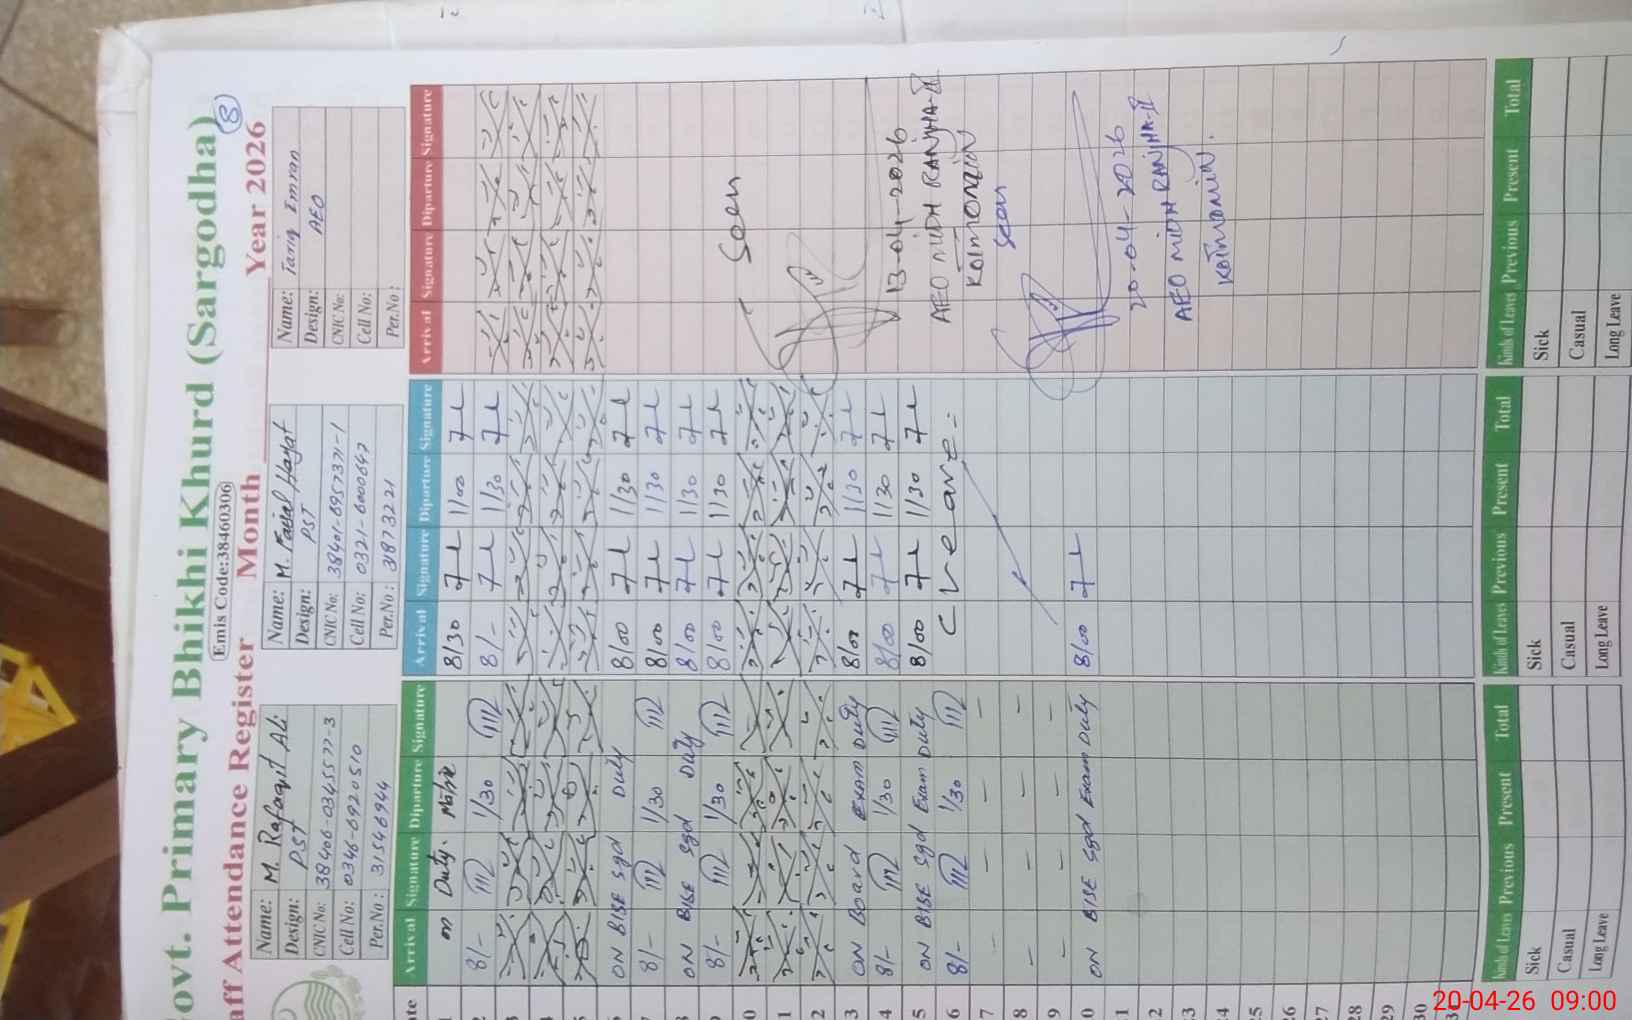 Govt. Primary Bhikhi Khurd (Sargodha)
Emis Code:38460306
8
Staff Attendance Register Month Year 2026
Name: M. Rafaqit Ali
Design: PST
CNIC No: 38406-0345577-3
Cell No: 0346-6920510
Per.No : 31546944
Name: M. Faisal Hayat
Design: PST
CNIC No: 38401-6957371-1
Cell No: 0321-6000647
Per.No : 31873221
Name: Tariq Emran
Design: AEO
CNIC No:
Cell No:
Per.No :
Arrival Signature Diparture Signature Arrival Signature Diparture Signature Arrival Signature Diparture Signature
1 on Duty. 8/30 1/00
2 8/- 1/30 8/- 1/30
3
4
5
6 ON BISE Sgd Duty 8/00 1/30
7 8/- 1/30 8/00 1/30
8 ON BISE Sgd Duty 8/00 1/30
9 8/- 1/30 8/00 1/30
Seen
10
11
12
13 ON Board Exam Duty 8/00 1/30
13-04-2026
14 8/- 1/30 8/00 1/30
AEO MIDH RANJHA-II
15 ON BISE Sgd Exam Duty 8/00 1/30
16 8/- 1/30
17 – – – –
Seen
18 – – – –
19 – – – –
20 ON BISE Sgd Exam Duty 8/00
21
20-04-2026
22
AEO MIDH RANJHA-II
23
24
25
26
27
28
29
30
Kinds of Leaves Previous Present Total Kinds of Leaves Previous Present Total Kinds of Leaves Previous Present Total
Sick Sick Sick
Casual Casual Casual
Long Leave Long Leave Long Leave
20-04-26 09:00